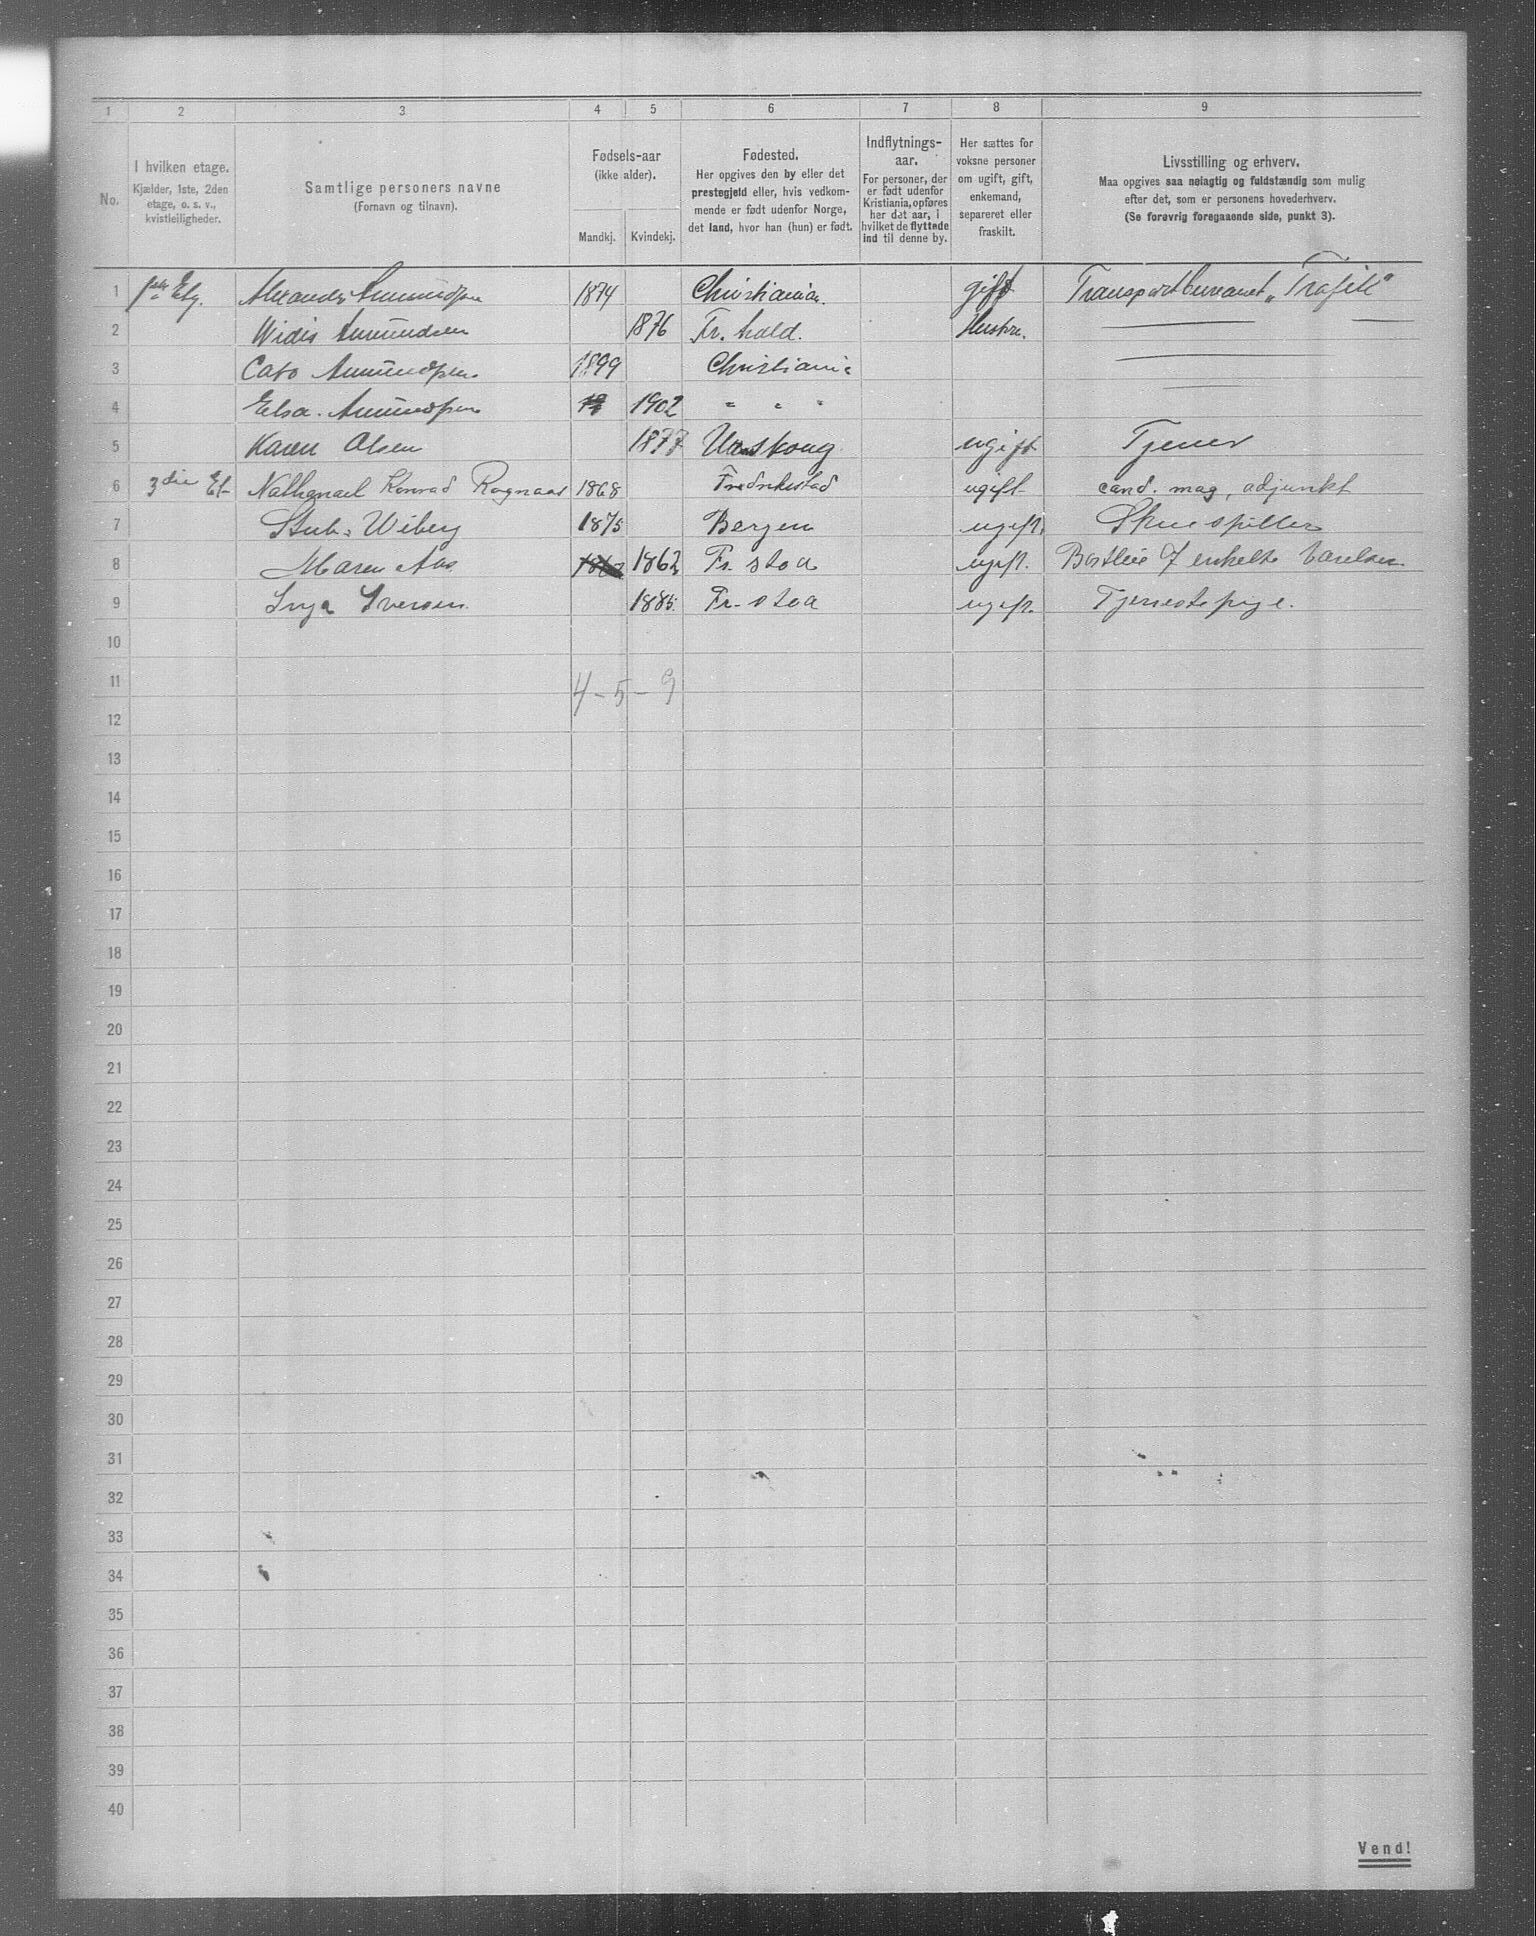 1 2 3 4 5 6 7 8 9
No.
I hvilken etage.
Kjælder, 1ste, 2den
etage, o. s. v.,
kvistleiligheder.
Samtlige personers navne
(Fornavn og tilnavn).
Fødsels-aar
(ikke alder).
Mandkj. Kvindekj.
Fødested.
Her opgives den by eller det
prestegjeld eller, hvis vedkom-
mende er født udenfor Norge,
det land, hvor han (hun) er født.
Indflytnings-
aar.
For personer, der
er født udenfor
Kristiania, opføres
her det aar, i
hvilket de flyttede
ind til denne by.
Her sættes for
voksne personer
om ugift, gift,
enkemand,
separeret eller
fraskilt.
Livsstilling og erhverv.
Maa opgives saa nøiagtig og fuldstændig som mulig
efter det, som er personens hovederhverv.
(Se forøvrig foregaaende side, punkt 3).
1 Etg. Alexander Amundsen 1874 Christiania gift Transportbureauet „Trafik"
2 Amundsen 1876 Fr. hald. Hustru.
3 Cato Amundsen 1899 Christiania
4 Elsa. Amundsen 1902 " " "
5 Karen Olsen 1877 ugift Tjener
6 3die Et Nathanael Konrad Rognaas 1868 Fredrikstad ugift cand. mag, adjunkt
7 Stub-Wiberg 1875 Bergen ugift. Skuespiller
8 Maren Aas 1862 Fr. stad ugift. enkelte Værelser
9 Inga Iversen. 1885. Fr. stad ugift. Tjenestepige.
10
11 4-5-9
12
13
14
15
16
17
18
19
20
21
22
23
24
25
26
27
28
29
30
31
32
33
34
35
36
37
38
39
40
Vend!